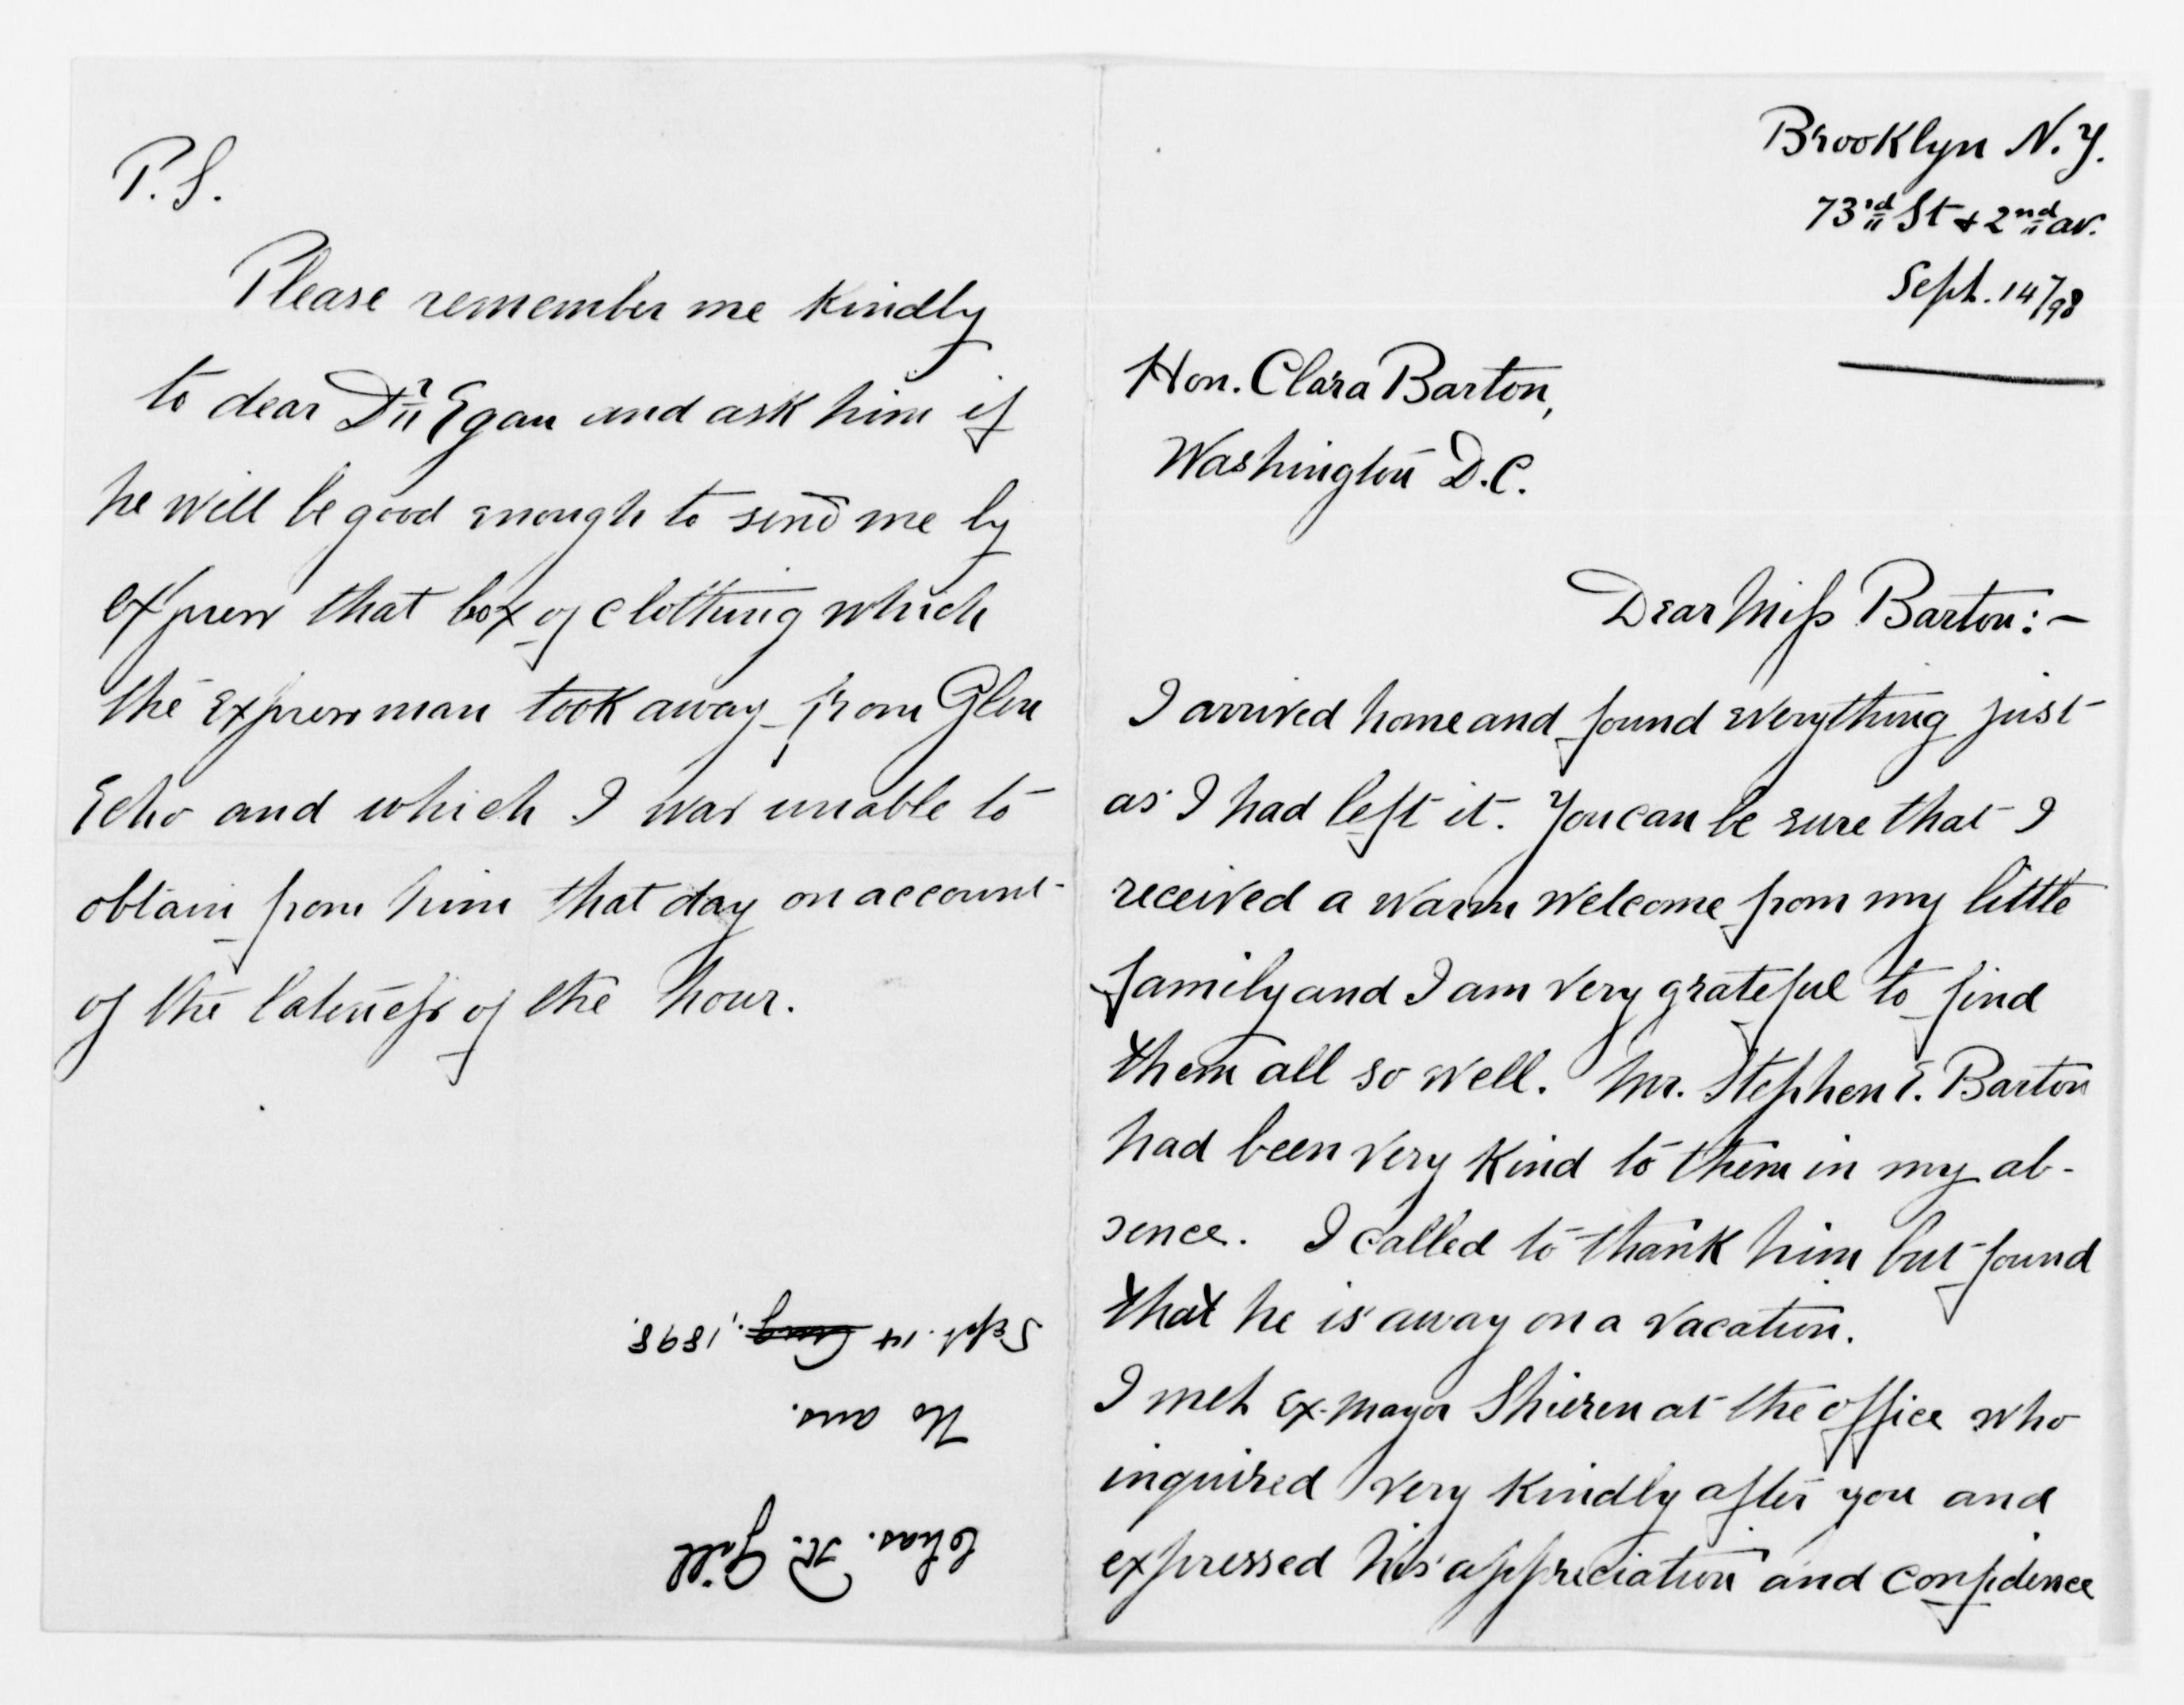 P.S.
Please remember me kindly
to dear Dr Egan and ask him if
he will be good enough to send me by
express that box of clothing which
the expressman took away from Glen
Echo and which I was unable to
obtain from him that day on account
of the lateness of the hour.
Chas. H. Gill
No ans.
Sept. 14 Aug., 1898.
Brooklyn N.Y.
73rd St & 2nd av.
Sept. 14/98
Hon. Clara Barton,
Washington D.C.
Dear Miss Barton:—
I arrived home and found everything just
as I had left it. You can be sure that I
received a warm welcome from my little
family and I am very grateful to find
them all so well. Mr. Stephen E. Barton
had been very kind to them in my ab-
sence. I called to thank him but found
that he is away on a vacation.
I met ex-Mayor Shieren at the office who
inquired very kindly after you and
expressed his appreciation and confidence